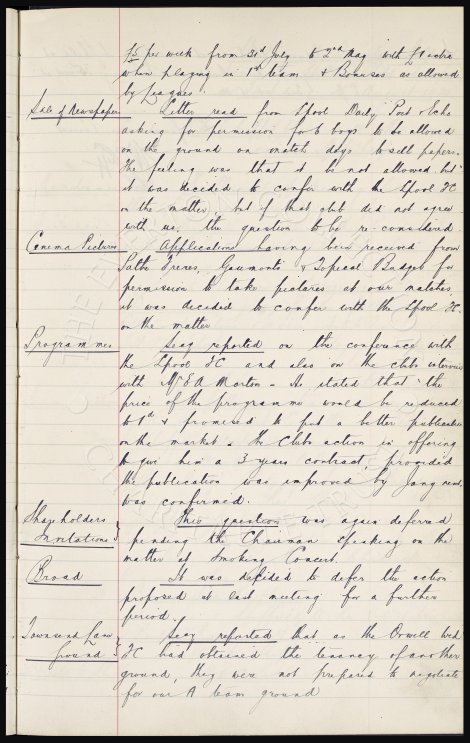 £5 per week from 31st July to 2nd May with £1 extra
when playing in 1st team & Bonuses as allowed
by Leagues
Sale of Newspapers Letter read from Lpool Daily Post & Echo
asking for permission for 6 boys to be allowed
on the ground on match days to sell papers.
The feeling was that it be not allowed but
it was decided to confer with the Lpool FC
on the matter, but if that club did not agree
with us, the question to be re-considered.
Cinema Pictures Application having been received from
Pathe Freres, Gaumont & Topical Budget for
permission to take pictures at our matches
it was decided to confer with the Lpool FC
on the matter
Programmes Secy reported on the conference with
the Lpool FC and also on the clubs interview
with Mr E A Morton - He stated that the
price of the programme would be reduced
to 1d & promised to put a better publication
on the market. The Clubs action in offering
to give him a 3 years contract, provided
the publication was improved by Jany next,
was confirmed.
Shareholders Invitations This question was again deferred
pending the Chairman speaking on the
matter at Smoking Concert.
Broad It was decided to defer the action
proposed at last meeting for a further
period.
Townsend Lane Ground Secy reported that as the Orwell Wed
FC had obtained the tenancy of another
ground, they were not prepared to negotiate
for our A team ground